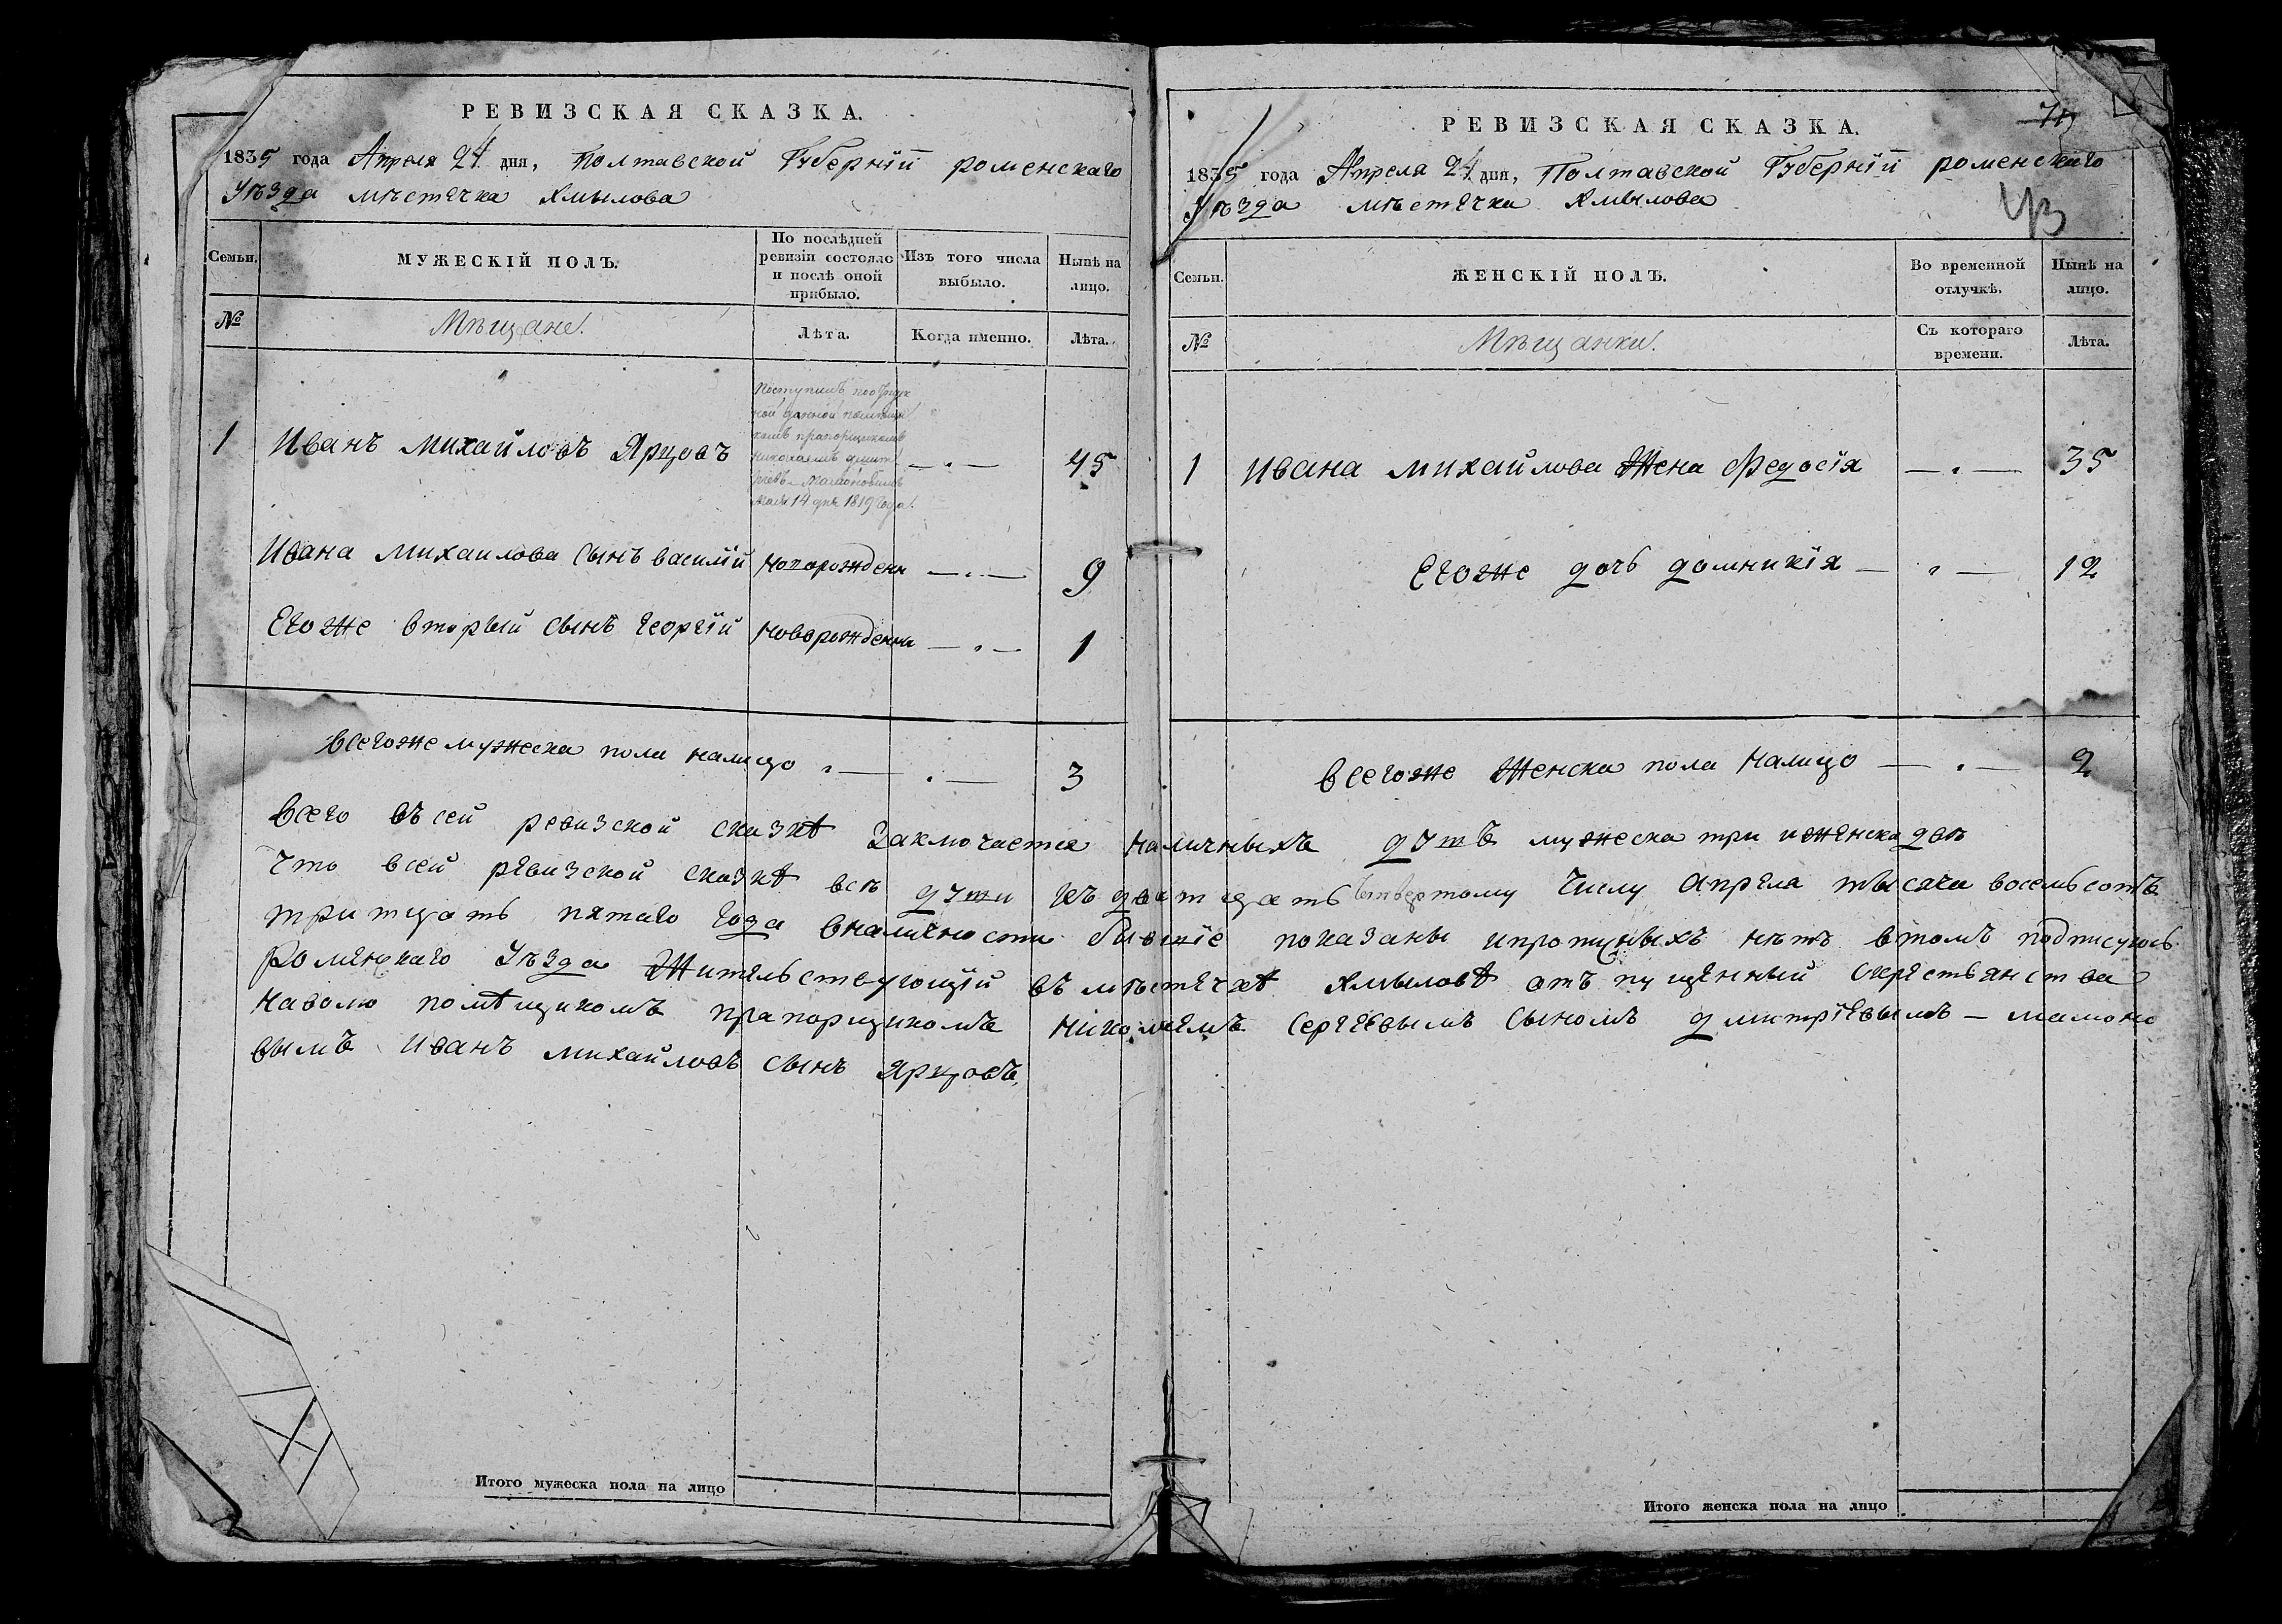 РЕВИЗСКАЯ СКАЗКА.
1835 года Апреля 24 дня, Полтавской Губернїи роменскаго
Уѣзда мѣстечка Хмылова
Семьи. МУЖЕСКІЙ ПОЛЪ. По послѣдней ревизіи состояло и послѣ оной прибыло. Изъ того числа выбыло. Нынѣ на лицо.
№ Мѣщане. Лѣта. Когда именно. Лѣта.
Поступилъ
ной данной помѣщи
комъ прапорщикомъ
Николаемъ Дмит
ріевъ-Мамоновымъ
Мая 14 дня 1819 года.
1 Иванъ Михайловъ Ярцовъ — „ — 45
Ивана Михаилова Сынъ василїй Новорожденн — „ — 9
Егоже вторый сынъ Георгїй Новорожденн — „ — 1
всегоже мужеска пола налицо „ — „ — 3
РЕВИЗСКАЯ СКАЗКА.
43
1835 года Апреля 24 дня, Полтавской Губернїи роменскаго
Уѣзда мѣстечка Хмылова
Семьи. ЖЕНСКІЙ ПОЛЪ. Во временной отлучкѣ. Нынѣ на лицо.
№ Мѣщанки. Съ котораго времени. Лѣта.
1 Ивана михайлова Жена Федосїя — „ — 35
Егоже дочь домникїя — „ — 12
всегоже Женска пола налицо — „ — 2
всего въ сей ревизской сказкѣ Заключается наличныхъ душъ мужеска три иженска двѣ
Что всей ревизской сказкѣ всѣ души къ двадцать Четвертому Числу апреля тысяча восемьсотъ
тритцать пятаго года вналичности бывшїе показаны ипропущныхъ нѣтъ втомъ подписуюсь
Роменскаго Уѣзда Жительствующїй въ мѣстечкѣ Хмыловѣ отъ пущенный скрестьянства
наволю помѣщикомъ прапорщикомъ Николаемъ Сергѣевымъ Сыномъ дмитрїевымъ – мамоно
вымъ Иванъ михайловъ сынъ Ярцовъ,
Итого мужеска пола на лицо
Итого женска пола на лицо